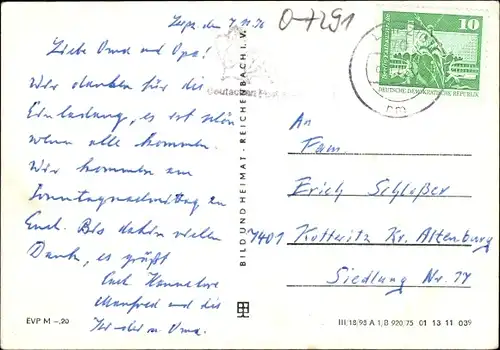 d. 7.11.76
0-7291
Liebe Oma und Opa!
Wir danken für die
Einladung, es ist schön
wenn alle kommen.
Wir kommen am
Sonntagnachmittag zu
Euch. Bis dahin vielen
Dank, es grüßt
Euch Hannelore
Manfred und die
Kinder u. Oma.
EVP M –,20
BILD UND HEIMAT · REICHENBACH I. V.
deutschen
10
DEUTSCHE DEMOKRATISCHE REPUBLIK
An
Fam
Erich Schloßer
7401 Kotteritz Kr. Altenburg
Siedlung Nr. 17
III/18/98 A 1/B 920/75 01 13 11 039